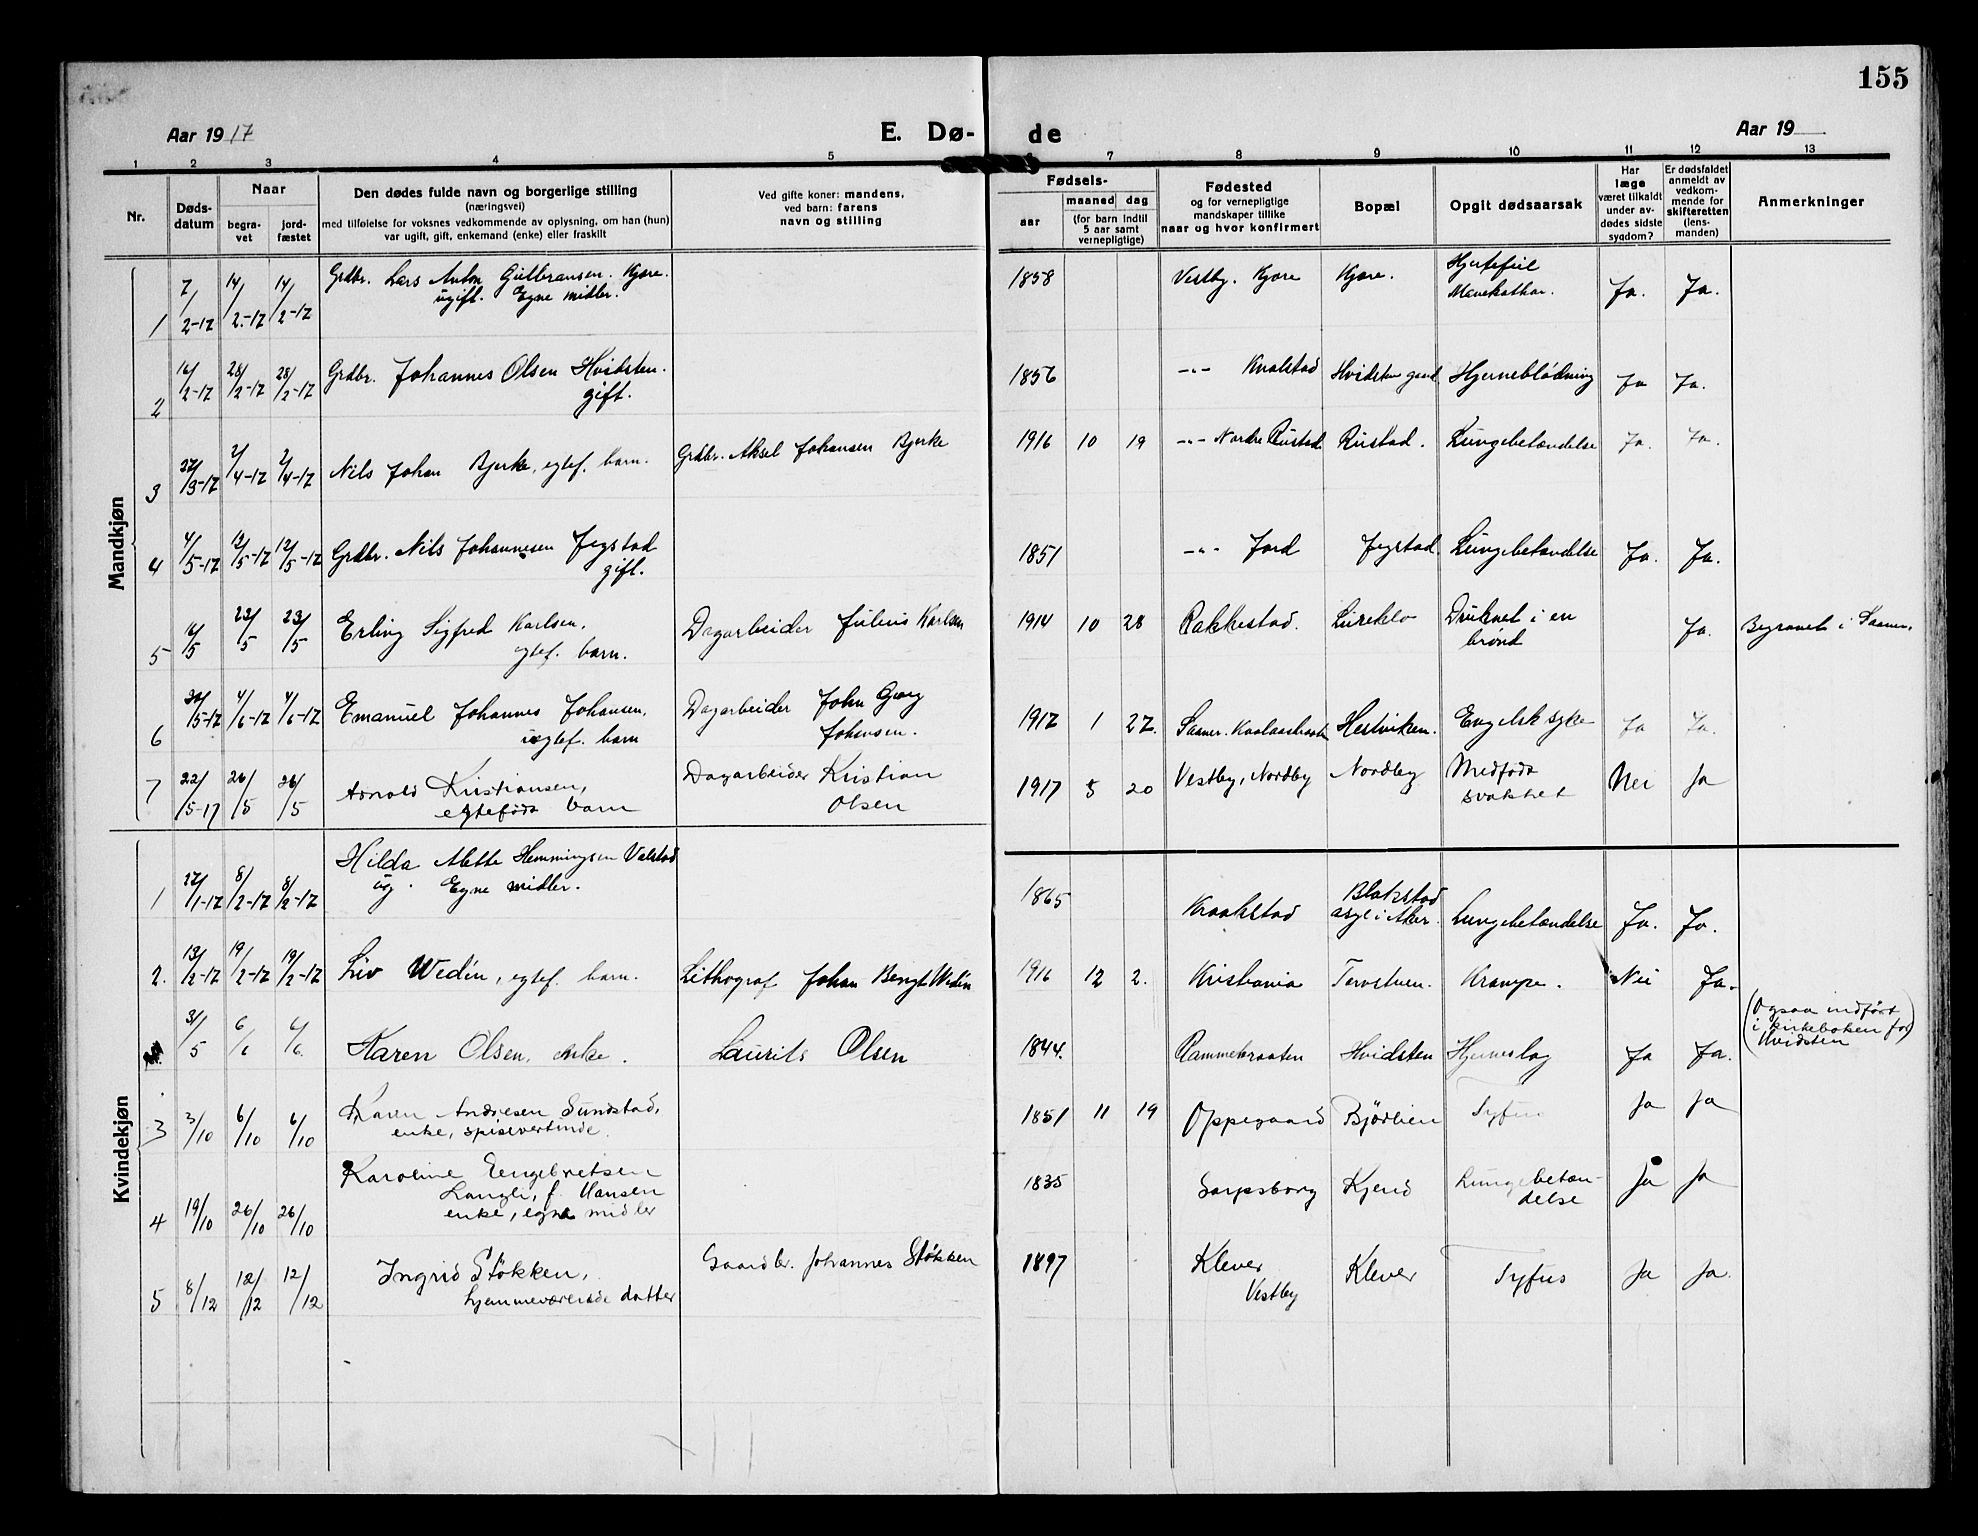 155
Aar 1917
E. Dø-de
Aar 19
1 2 3 4 5 7 8 9 10 11 12 13
Nr.
Døds-
datum
Naar
begra-
vet
jord-
fæstet
Den dødes fulde navn og borgerlige stilling
(næringsvei)
med tilføielse for voksnes vedkommende av oplysning, om han (hun)
var ugift, gift, enkemand (enke) eller fraskilt
Ved gifte koner: mandens,
ved barn: farens
navn og stilling
Fødsels-
aar
maaned
dag
(for barn indtil
5 aar samt
vernepligtige)
Fødested
og for vernepligtige
mandskaper tillike
naar og hvor konfirmert
Bopæl
Opgit dødsaarsak
Har
læge
været tilkaldt
under av-
dødes sidste
sygdom?
Er dødsfaldet
anmeldt av
vedkom-
mende for
skifteretten
(lens-
manden)
Anmerkninger
Mandkjøn
1 7/2-17 14/2-17 14/2-17 Grdbr. Lars Anton Gulbransen. Kjøre. 1858 Vestby. Kjøre Kjøre. Hjertefeil Ja. Ja.
ugift. Egne midler.
2 16/2-17 28/2-17 28/2-17 Grdbr. Johannes Olsen Hvidsten. 1856 -"- Hvidsten Hjerneblødning Ja Ja.
gift.
3 22/3-17 2/4-17 2/4-17 Nils Johan Bjerke, egtef. barn. Grdbr. Aksel Johansen Bjerke 1916 10 19 -"- Nordre Rustad Rustad. Lungebetændelse Ja. Ja.
4 4/5-17 12/5-17 12/5-17 Grdbr. Nils Johannesen Jegstad 1851 -"- Jord Jegstad Lungebetændelse Ja. Ja.
gift.
5 16/5 23/5 23/5 Erling Sigfred Karlsen, Dagarbeider Julius Karlsen 1914 10 28 Rakkestad. Druknet i en Ja. Begravet i Saaner.
egtef. barn. brønd
6 4/6-17 4/6-17 Emanuel Johannes Johansen, Dagarbeider John Georg 1917 1 27. Saaner. Hestviken. Engelsk syke Ja Ja.
uegtef. barn Johansen.
7 22/5-17 26/5 26/5 Arnold Kristiansen, Dagarbeider Kristian 1917 5 20 Vestby, Nordby Nordby Medfødt Nei Ja
egtefødt barn Olsen svakhet
Kvindekjøn
1 8/2-17 8/2-17 Hilda Alette Hemmingsen Valstad 1865 Kraakstad Blakstad Lungebetændelse Ja. Ja.
ug. Egne midler. asyl i Aker.
2. 13/2-17 19/2-17 19/2-17 Liv Wedin, egtef. barn. Lithograf Johan Bengt Wedin 1916 12 2. Kristiania Krampe. Nei Ja.
31/5 6/6 6/6 Karen Olsen, enke. Laurits Olsen 1844. Rammebraaten Hvidsten Hjerneslag Ja Ja. (Ogsaa indført
i kirkeboken for
Hvidsten)
3 3/10 6/10 6/10 Karen Andresen Sundstad, 1851 11 19 Oppegaard Bjørlien Tyfus Ja Ja
enke, spisevertinde.
4 19/10 26/10 26/10 Karoline Engebretsen 1835 Sarpsborg Lungebetæn- Ja Ja
Langli, f. Hansen delse
enke, egne midler
5 8/12 12/12 12/12 Ingrid Støkken, Gaardbr. Johannes Støkken 1897 Klever Klever Tyfus Ja Ja
hjemmeværende datter Vestby